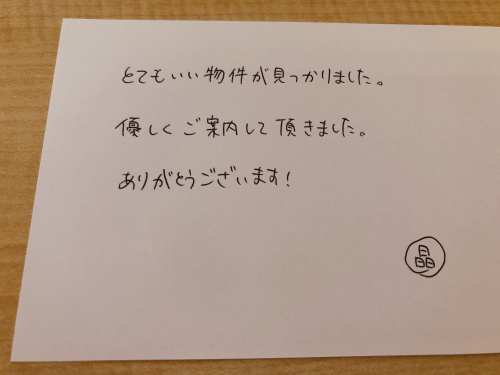 とてもいい物件が見つかりました。
優しくご案内して頂きました。
ありがとうございます!
晶